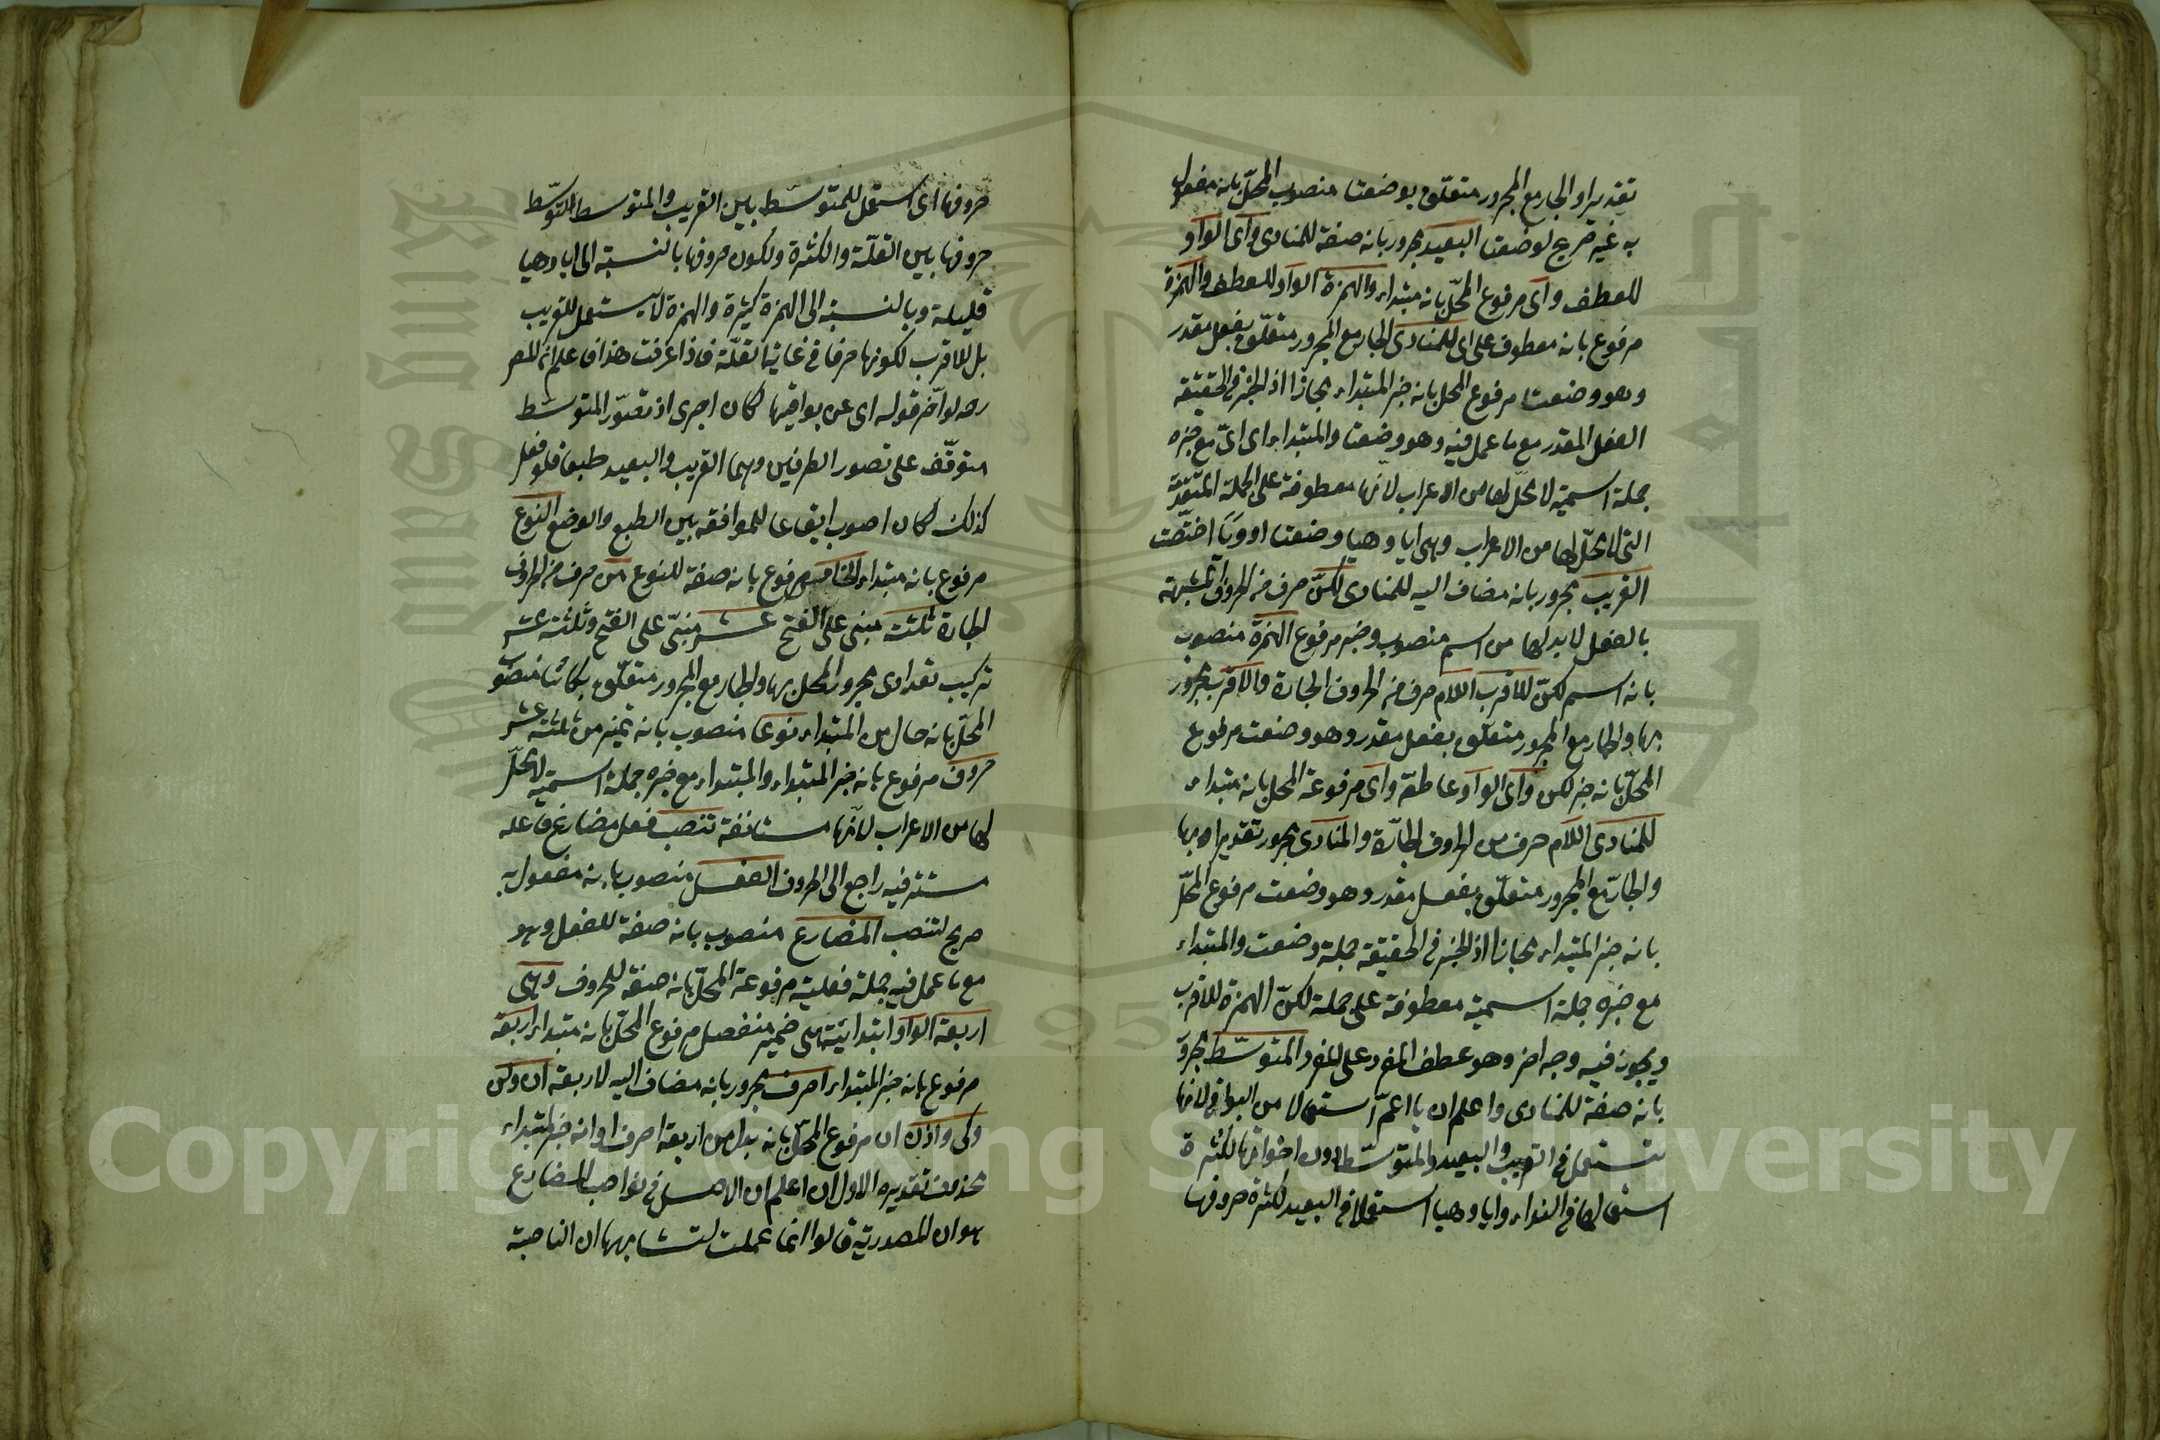 تقديرا والجار مع المجرور متعلق بوضعتا منصوب المحل بانه مفعول
به غير صريح لوضعتا البعيد مجرور بانه صفة للمنادى وآى الواو
للعطف وآى مرفوع المحل بانه مبتداء والهمزة الواو للعطف والهمزة
مرفوع بانه معطوف على اى للمنادى الجار مع المجرور متعلق بفعل مقدر
وهو وضعتا مرفوع المحل بانه خبر المبتداء مجازا اذ الخبر فى الحقيقة
الفعل المقدر مع ما عمل فيه وهو وضعتا والمبتداء اى اى مع خبره
جملة اسمية لا محل لها من الاعراب لانها معطوفة على الجملة المتقدمة
التى لا محل لها من الاعراب وهى ايا وهيا وضعتا او ويا اختصت
القريب مجرور بانه مضاف اليه للمنادى لكن حرف من الحروف المشبهة
بالفعل لا بد لها من اسم منصوب وخبر مرفوع الهمزة منصوب
بانه اسم لكن للاقرب اللام حرف من الحروف الجارة والاقرب مجرور
بها والجار مع المجرور متعلق بفعل مقدر وهو وضعت مرفوع
المحل بانه خبر لكن وآى الواو عاطفة وآى مرفوعة المحل بانه مبتداء
للمنادى اللام حرف من الحروف الجارة والمنادى مجرور تقديرا بها
والجار مع المجرور متعلق بفعل مقدر وهو وضعت مرفوع المحل
بانه خبر المبتداء مجازا اذ الخبر فى الحقيقة جملة وضعت والمبتداء
مع خبره جملة اسمية معطوفة على جملة لكن الهمزة للاقرب
ويجوز فيه وجه اخر وهو عطف المفرد على المفرد المتوسط مجرور
بانه صفة للمنادى واعلم ان يا اعم استعمالا من البواقى لانها
تستعمل فى القريب والبعيد والمتوسط دون اخواتها لكثرة
استعمالها فى النداء وايا وهيا استعملا فى البعيد لكثرة حروفها
حروفها اى استعمل للمتوسط بين القريب والمتوسط لتوسط
حروفها بين القلة والكثرة ولكون حروفها بالنسبة الى ايا وهيا
قليلة وبالنسبة الى الهمزة كثيرة والهمزة لا يستعمل للقريب
بل للاقرب لكونها حرفا فى غاية القلة فاذا عرفت هذا فاعلم ان المص
رحه لو اخر قوله اى عن بواقيها لكان احرى اذ تصور المتوسط
متوقف على تصور الطرفين وهما القريب والبعيد طبعا فلو فعل
كذلك لكان اصوب ايقاعا للموافقة بين الطبع والوضع النوع
مرفوع بانه مبتداء الخامس مرفوع بانه صفة للنوع من حرف من الحروف
الجارة ثلثة مبنى على الفتح عشر مبنى على الفتح وثلثة عشر
تركيب تعدادى مجرور المحل بها والجار مع المجرور متعلق بكائنا منصوب
المحل بانه حال من المبتداء نوعا منصوب بانه تميز من ثلثة عشر
حروف مرفوع بانه خبر المبتداء والمبتداء مع خبره جملة اسمية لا محل
لها من الاعراب لانها مستانفة تنصب فعل مضارع فاعله
مستتر فيه راجع الى الحروف الفعل منصوب بانه مفعول به
صريح لتنصب المضارع منصوب بانه صفة للفعل وهو
مع ما عمل فيه جملة فعلية مرفوعة المحل بانه صفة للحروف وهى
اربعة الواو ابتدائية هى ضمير منفصل مرفوع المحل بانه مبتداء اربعة
مرفوع بانه خبر المبتداء احرف مجرور بانه مضاف اليه لاربعة ان ولن
وكى واذن ان مرفوع المحل بانه بدل من اربعة احرف او انه خبر لمبتداء
محذوف تقديره الاول ان اعلم ان الاصل فى نواصب المضارع
هو ان المصدرية قالوا انما عملت لتشابهها ان الناصبة